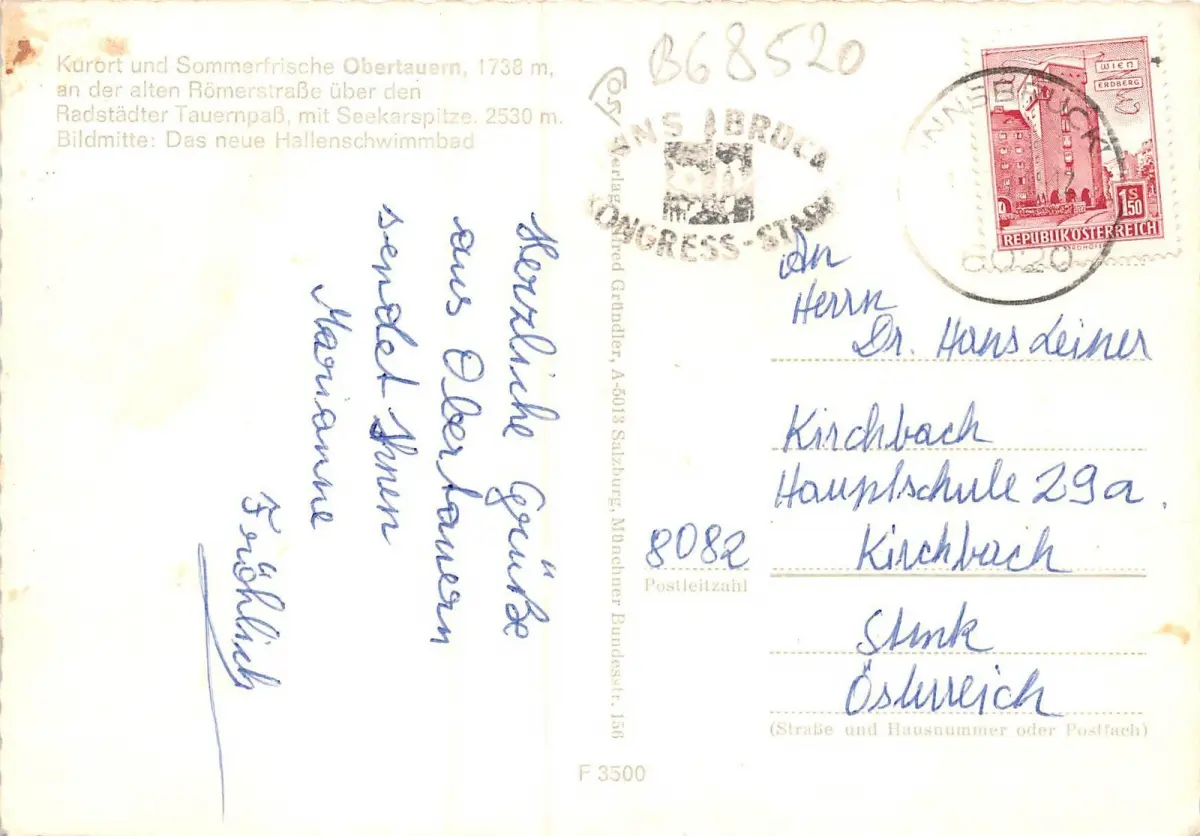 Kurort und Sommerfrische Obertauern, 1738 m,
an der alten Römerstraße über den
Radstädter Tauernpaß, mit Seekarspitze. 2530 m.
Bildmitte: Das neue Hallenschwimmbad
B68520
INNSBRUCK
KONGRESS-STADT
INNSBRUCK
6020
WIEN
ERDBERG
1.50
S
REPUBLIK ÖSTERREICH
Herzliche Grüße
aus Obertauern
sendet Ihnen
Marianne
Fröhlich
Gründler, A-5013 Salzburg, Münchner Bundesstr. 156
An
Herrn
Dr. Hans Leiner
Kirchbach
Hauptschule 29a.
8082 Kirchbach
Postleitzahl
Stmk
Österreich
(Straße und Hausnummer oder Postfach)
F 3500